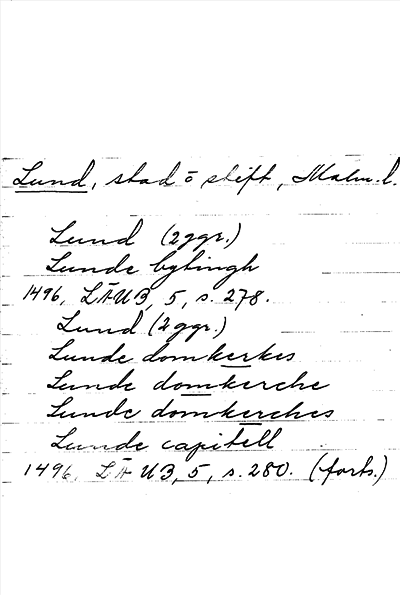 Lund, stad o stift, Malm. l.
Lund (2 ggr.)
Lunde bytingh
1496, LÄUB, 5, s. 278.
Lund (2 ggr.)
Lunde domkerkes
Lunde domkerche
Lunde domkerches
Lunde capitell
1496, LÄUB, 5, s. 280. (forts.)